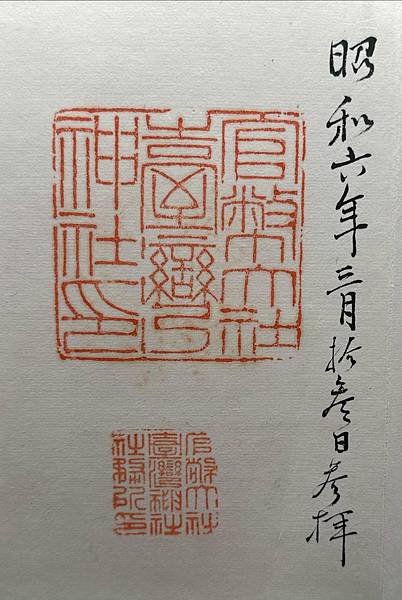 昭和六年三月拾参日参拝
官幣大社
臺灣
神社印
官幣大社
臺灣神社
社務所印